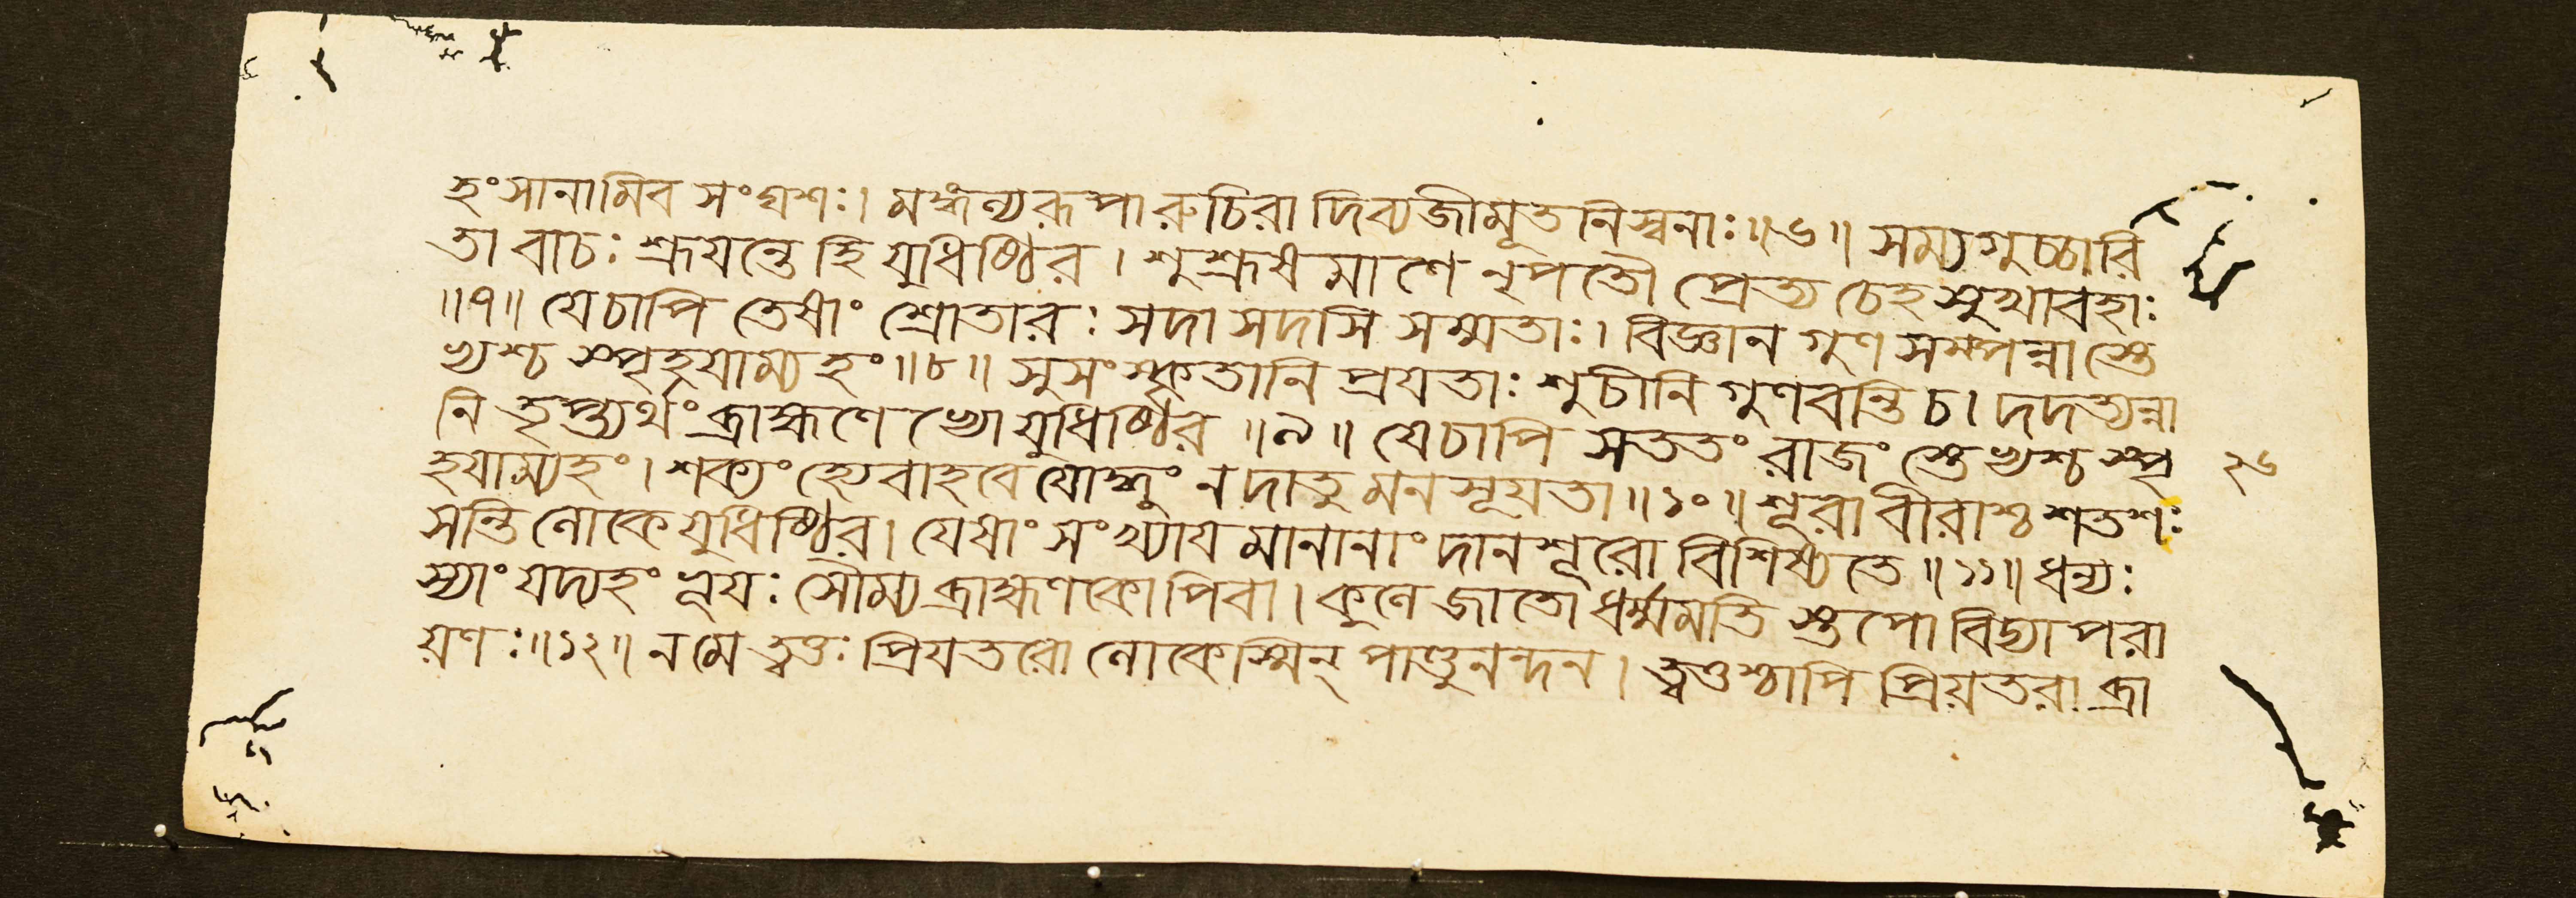 হংসানামিব সংঘশঃ। মঙ্গল্যরূপা রুচিরা দিব্যজীমূতনিস্বনাঃ॥৬॥ সম্যগুচ্চারি
তা বাচঃ শ্রূযন্তে হি যুধিষ্ঠির। শুশ্রূষমাণে নৃপতৌ প্রেত্য চেহ সুখাবহাঃ
॥৭॥ যেচাপি তেষাং শ্রোতারঃ সদা সদসি সম্মতাঃ। বিজ্ঞান গুণ সম্পন্নাস্তে
ভ্যশ্চ স্পৃহযাম্যহং॥৮॥ সুসংস্কৃতানি প্রযতাঃ শুচীনি গুণবন্তি চ। দদত্যন্না
নি তৃপ্ত্যর্থং ব্রাহ্মণেভ্যো যুধিষ্ঠির॥৯॥ যেচাপি সততং রাজংস্তেভ্যশ্চ স্পৃ
হযাম্যহং। শক্যং হ্যেবাহবে যোদ্ধুং ন দাতুমনসূয়তা॥১০॥ শূরা বীরাশ্চ শতশঃ
সন্তি লোকে যুধিষ্ঠির। যেষাং সংখ্যায মানানাং দানশূরো বিশিষ্যতে॥১১॥ ধন্যঃ
স্যাং যদ্যহং ভূযঃ সৌম্য ব্রাহ্মণকোপিবা। কুলে জাতো ধর্ম্মমতিস্তপো বিদ্যা পরা
য়ণঃ॥১২॥ নমে ত্বত্তঃ প্রিযতরো লোকেস্মিন্ পাণ্ডুনন্দন। ত্বত্তশ্চাপি প্রিয়তরা ব্রা
২৬